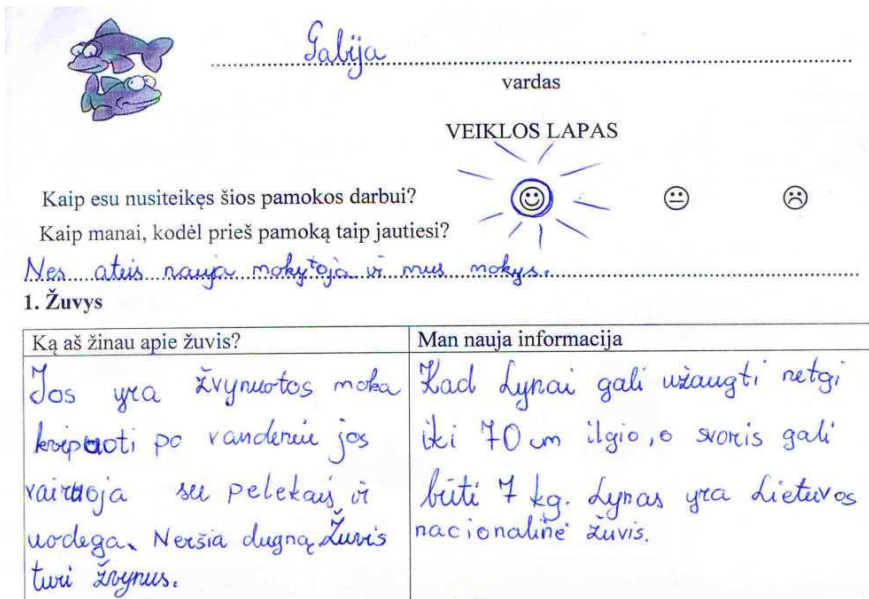 Gabija
vardas
VEIKLOS LAPAS
Kaip esu nusiteikęs šios pamokos darbui?
Kaip manai, kodėl prieš pamoką taip jautiesi?
Nes ateis nauja mokytoja ir mus mokys.
1. Žuvys
Ką aš žinau apie žuvis?
Jos yra žvynuotos moka
kvėpuoti po vandeniu jos
vairuoja su pelekais ir
uodega. Neršia dugną Žuvis
turi žvynus.
Man nauja informacija
Kad Lynai gali užaugti netgi
iki 70 cm ilgio, o svoris gali
būti 7 kg. Lynas yra Lietuvos
nacionalinė žuvis.